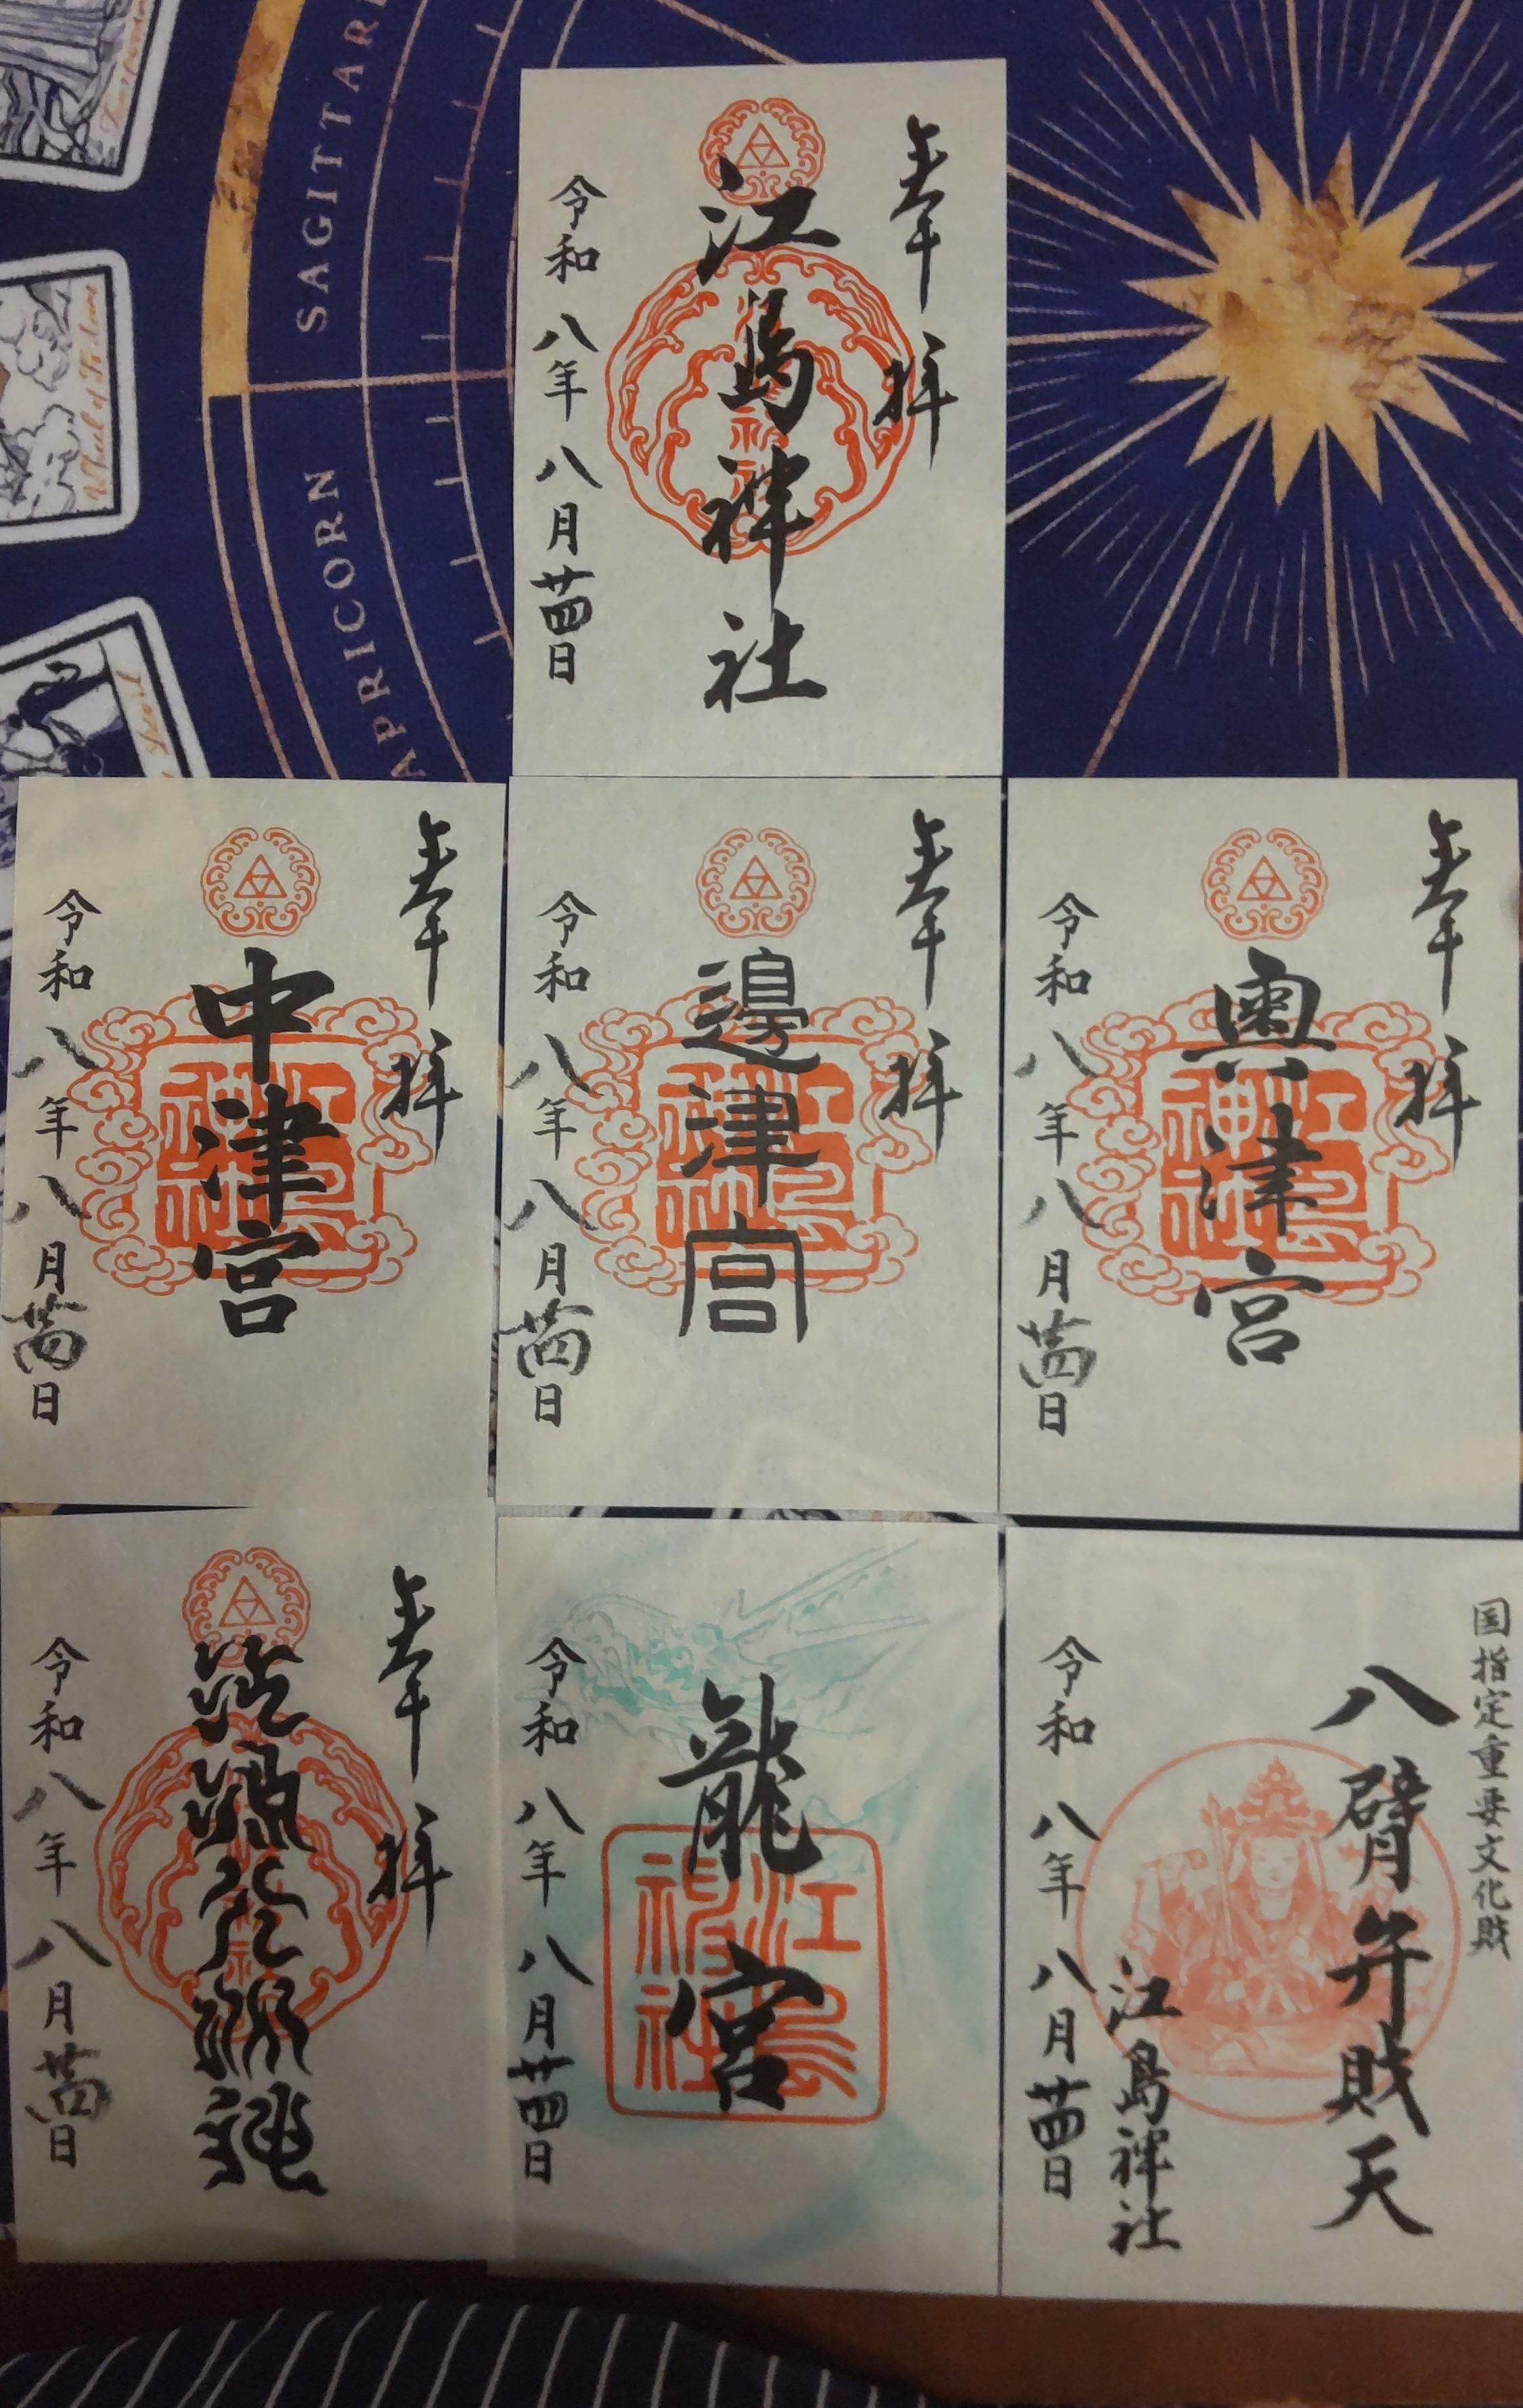 SAGITTARI
APRICORN
Wheel of Fortune
奉拝
江島神社
令和八年八月廿四日
奉拝
中津宮
令和八年八月廿四日
奉拝
邊津宮
令和八年八月廿四日
奉拝
奥津宮
令和八年八月廿四日
奉拝
令和八年八月廿四日
龍宮
江島神社
令和八年八月廿四日
国指定重要文化財
八臂弁財天
江島神社
令和八年八月廿四日